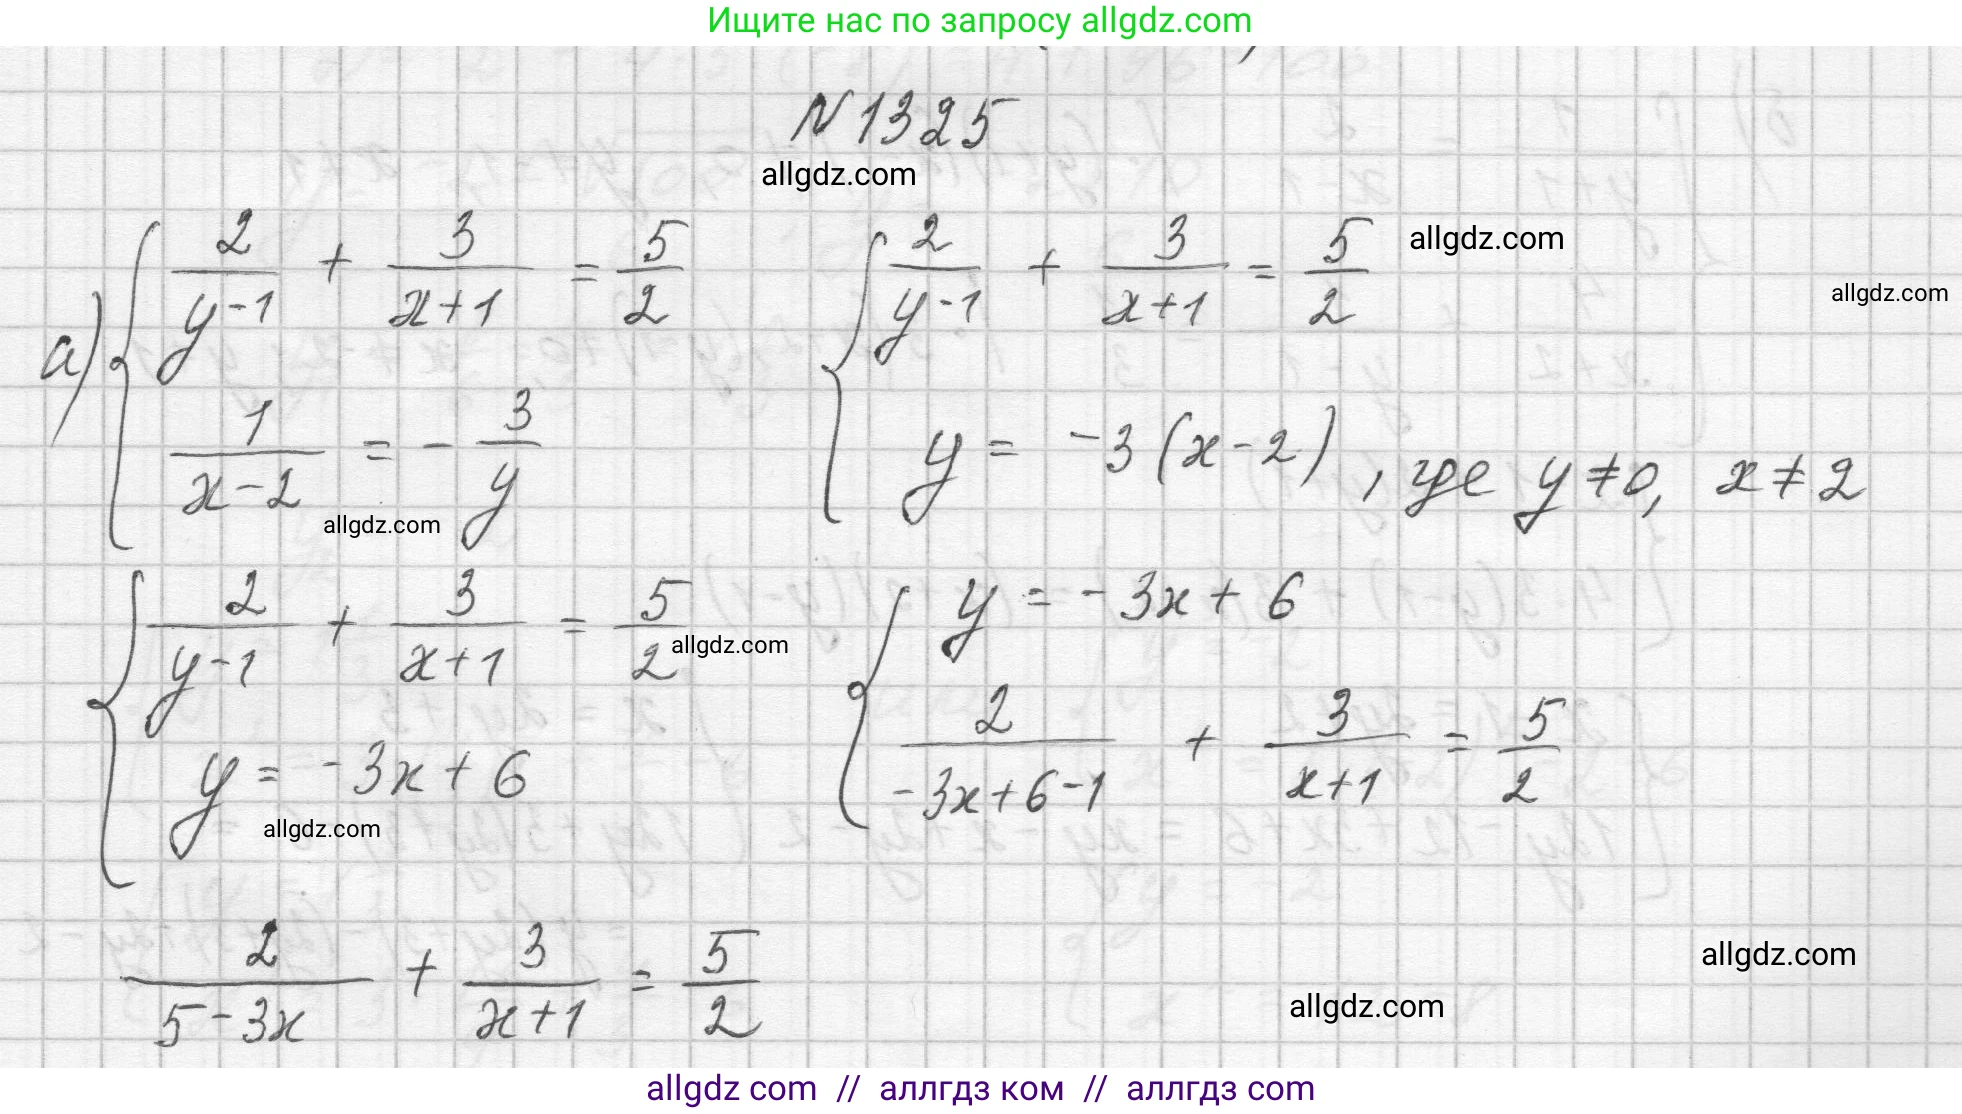 Ищите нас по запросу allgdz.com
N 1325
allgdz.com
а) { 2/(y-1) + 3/(x+1) = 5/2
1/(x-2) = - 3/y
allgdz.com
{ 2/(y-1) + 3/(x+1) = 5/2
allgdz.com
allgdz.com
y = -3(x-2), где y ≠ 0, x ≠ 2
{ 2/(y-1) + 3/(x+1) = 5/2
allgdz.com
y = -3x + 6
allgdz.com
{ y = -3x + 6
2/(-3x+6-1) + 3/(x+1) = 5/2
2/(5-3x) + 3/(x+1) = 5/2
allgdz.com
allgdz.com
allgdz com // аллгдз ком // аллгдз com